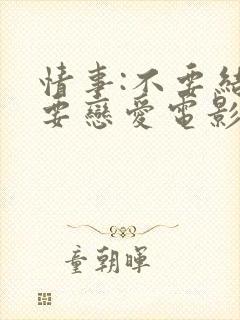 情事:不要結
要戀愛電影
童朝暉